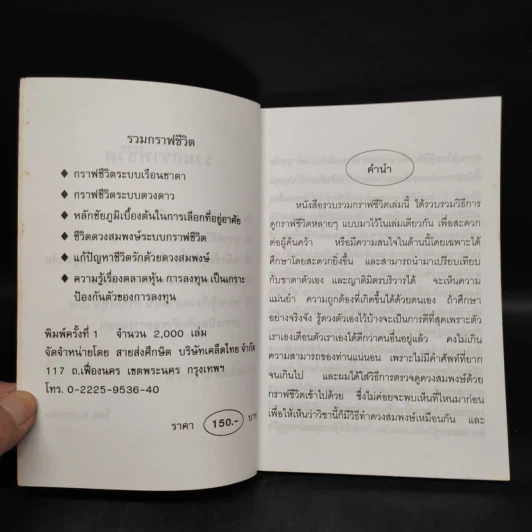 รวมกราฟชีวิต
◆ กราฟชีวิตระบบเรือนชาตา
◆ กราฟชีวิตระบบดวงดาว
◆ หลักชัยภูมิเบื้องต้นในการเลือกที่อยู่อาศัย
◆ ชีวิตดวงสมพงษ์ระบบกราฟชีวิต
◆ แก้ปัญหาชีวิตรักด้วยดวงสมพงษ์
◆ ความรู้เรื่องตลาดหุ้น การลงทุน เป็นเกราะ
ป้องกันตัวของการลงทุน
พิมพ์ครั้งที่ 1 จำนวน 2,000 เล่ม
จัดจำหน่ายโดย สายส่งศึกษิต บริษัทเคล็ดไทย จำกัด
117 ถ.เฟื่องนคร เขตพระนคร กรุงเทพฯ
โทร. 0-2225-9536-40
ราคา 150.- บาท
คำนำ
หนังสือรวบรวมกราฟชีวิตเล่มนี้ ได้รวบรวมวิธีการ
ดูกราฟชีวิตหลายๆ แบบมาไว้ในเล่มเดียวกัน เพื่อสะดวก
ต่อผู้ค้นคว้า หรือมีความสนใจในด้านนี้โดยเฉพาะได้
ศึกษาโดยสะดวกยิ่งขึ้น และสามารถนำมาเปรียบเทียบ
กับชาตาตัวเอง และญาติมิตรบริวารได้ จะเห็นความ
แม่นยำ ความถูกต้องที่เกิดขึ้นได้ด้วยตนเอง ถ้าศึกษา
อย่างจริงจัง รู้ดวงตัวเองไว้บ้างจะเป็นการดีที่สุดเพราะตัว
เราเองเตือนตัวเราเองได้ดีกว่าคนอื่นอยู่แล้ว คงไม่เกิน
ความสามารถของท่านแน่นอน เพราะไม่มีคำศัพท์ที่ยาก
จนเกินไป และผมได้ใส่วิธีการตรวจดูดวงสมพงษ์ด้วย
กราฟชีวิตเข้าไปด้วย ซึ่งไม่ค่อยจะพบเห็นที่ไหนมาก่อน
เพื่อให้เห็นว่าวิชานี้ก็มีวิธีทำดวงสมพงษ์เหมือนกัน และ